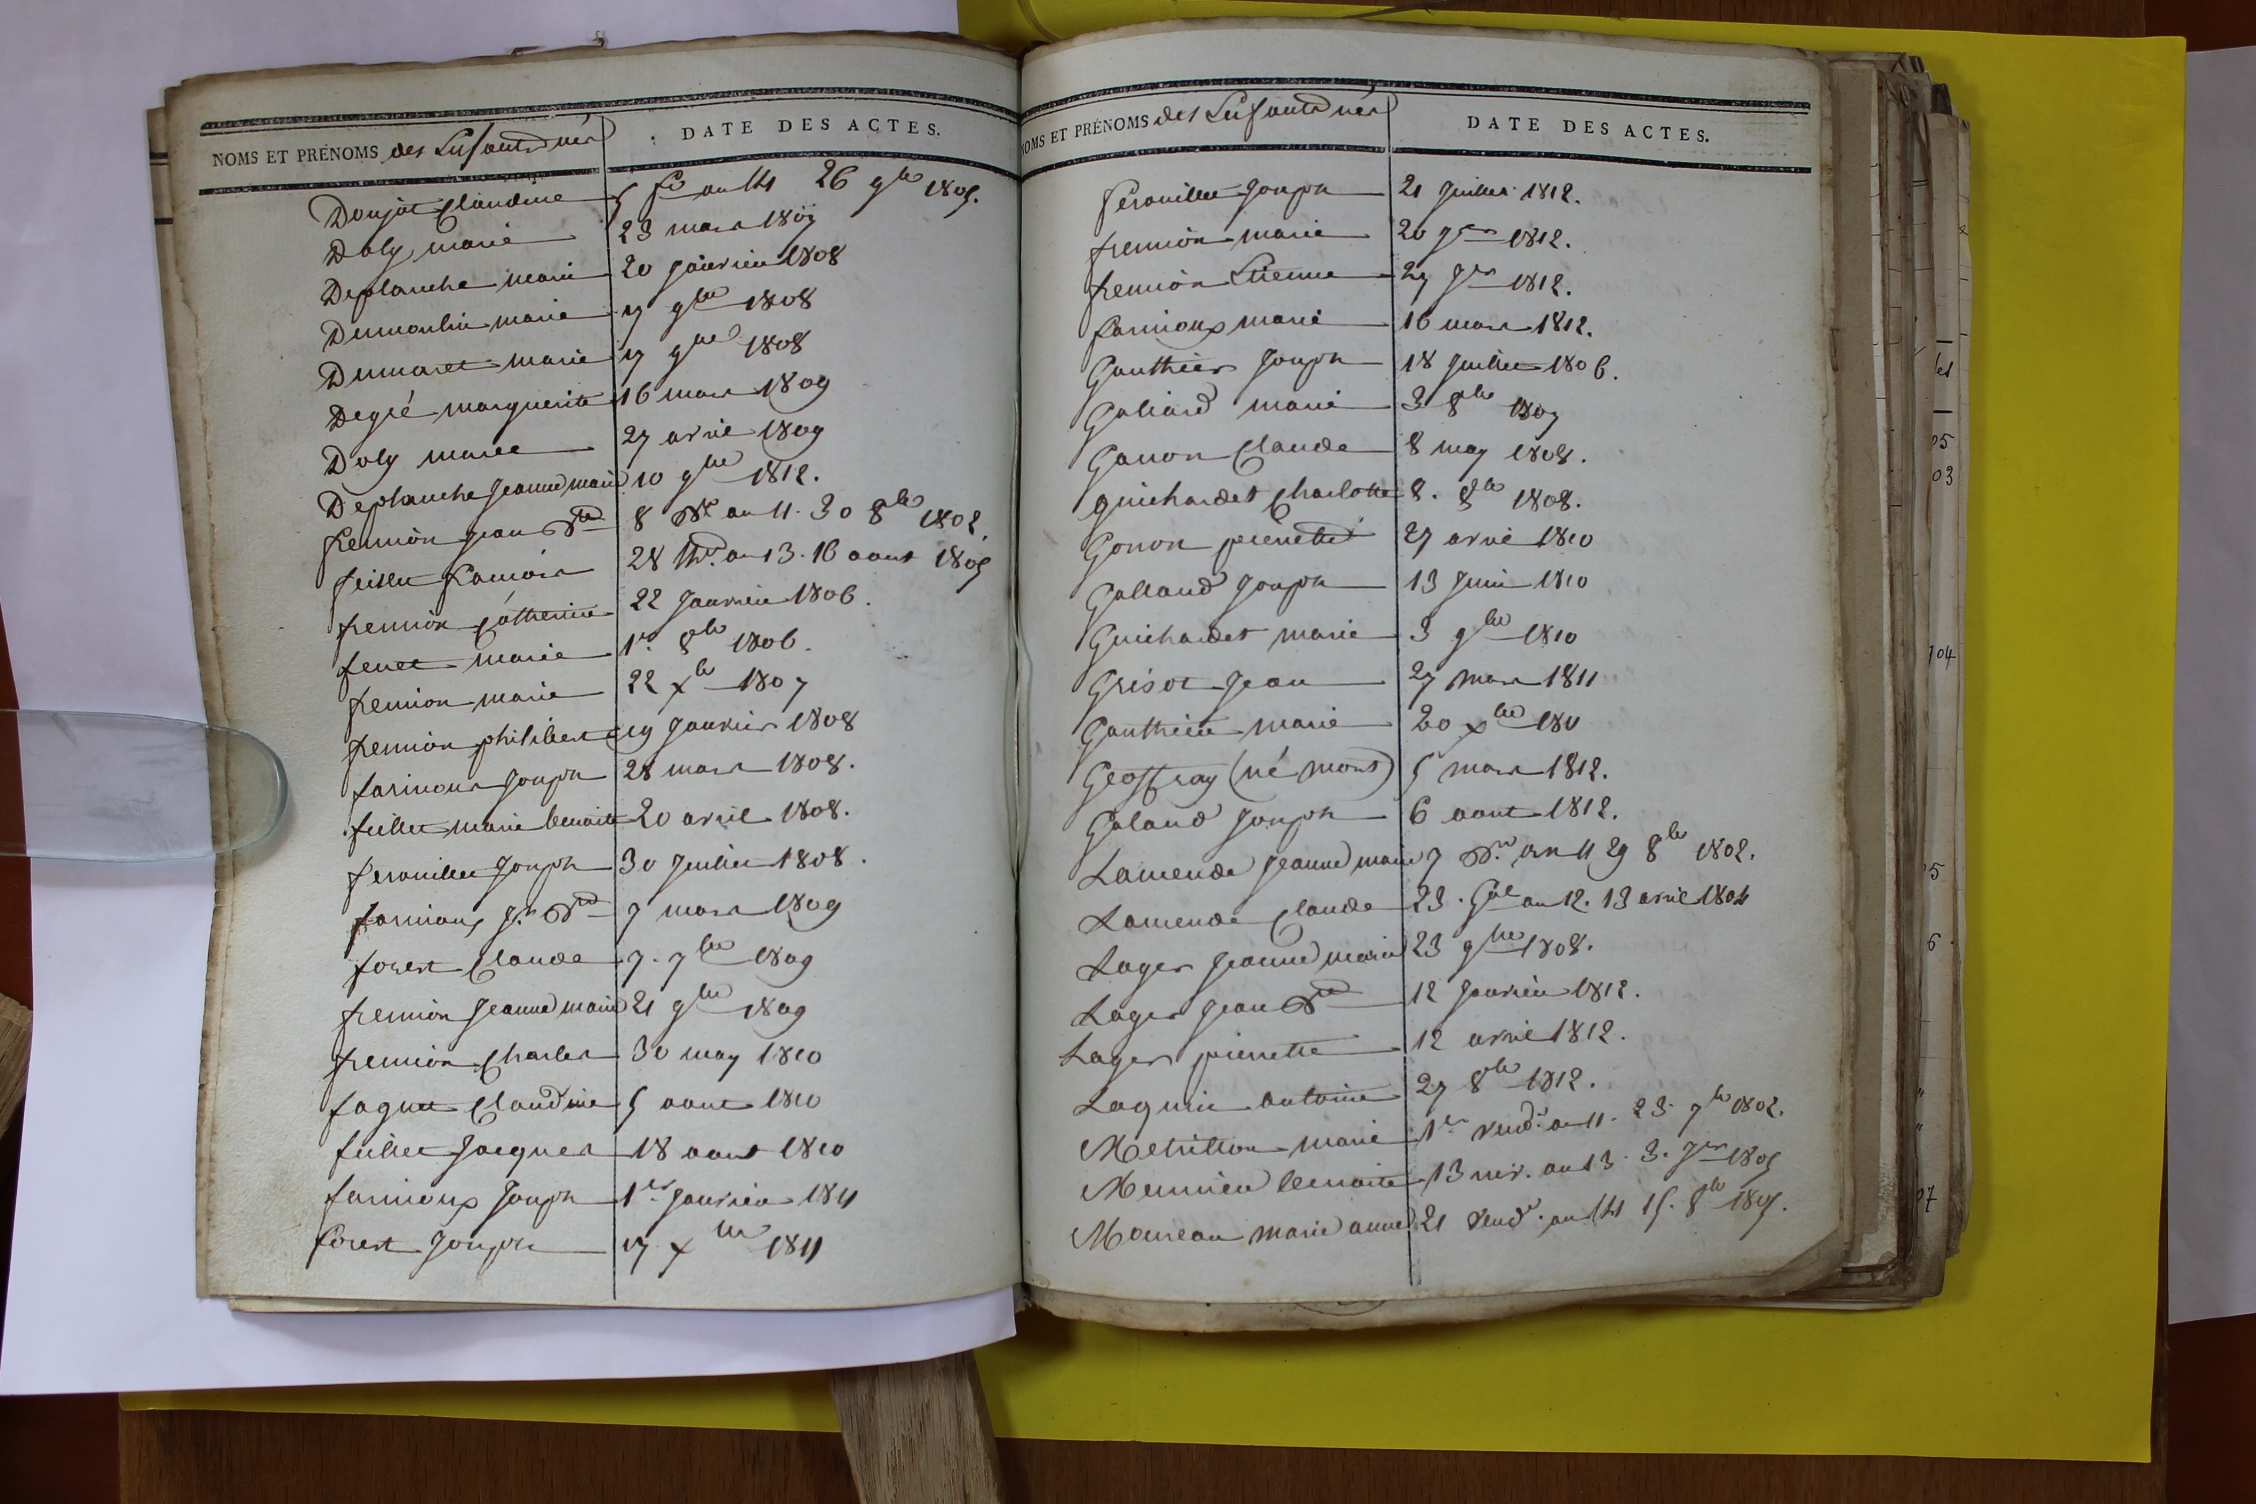 NOMS ET PRÉNOMS des Enfants nés
DATE DES ACTES.
Donjat Claudine 5 fre an 14 26 9bre 1805.
Doly marie 23 mars 1807
Deplanche marie 20 Janvier 1808
Dumoulin marie 17 9bre 1808
Dumaret marie 17 9bre 1808
Degré marguerite 16 mars 1809
Doly marie 27 avril 1809
Deplanche Jeanne marie 10 9bre 1812.
fremion Jean Bte 8 Bre an 11. 30 8bre 1802.
feillet francois 28 thr. an 13. 16 aout 1805
fremion Catherine 22 Janvier 1806.
fenet marie 1er 8bre 1806.
fremion marie 22 xbre 1807
fremion philibert 19 Janvier 1808
farinoux Joseph 28 mars 1808.
feillet marie benoite 20 avril 1808.
ferouillet Joseph 30 Juillet 1808.
farnioux Jn Bte 7 mars 1809
forest Claude 7. 7bre 1809
fremion Jeanne marie 21 9bre 1809
fremion Charles 30 may 1810
faguet Claudine 5 aout 1810
feillet Jacques 18 aout 1810
farnioux Joseph 1er Janvier 1811
forest Joseph 17 xbre 1811
NOMS ET PRÉNOMS des Enfants nés
DATE DES ACTES.
ferouillet Joseph 21 Juillet 1812.
fremion marie 20 Jer 1812.
fremion Etienne 27 Jer 1812.
farnioux marie 16 mars 1812.
Gauthier Joseph 18 Juillet 1806.
Galiard marie 3 8bre 1807
Ganon Claude 8 may 1808.
guichardet Charlotte 8. 8bre 1808.
Gonon pierrette 27 avril 1810
Galland Joseph 13 Juin 1810
Guichardet marie 3 9bre 1810
Grisot Jean 27 mars 1811
Gauthier marie 20 xbre 1811
Geoffray (né mort) 5 mars 1812.
Galand Joseph 6 aout 1812.
Lamende Jeanne marie 7 Bre an 11 29 8bre 1802.
Lamende Claude 23. Gal an 12. 13 avril 1804
Lager Jeanne marie 23 9bre 1808.
Lager Jean Bte 12 Janvier 1812.
Lager pierrette 12 avril 1812.
Laquin antoine 27 8bre 1812.
Metrillon marie 1er vend. an 11. 23 7bre 1802.
Meunieu benoite 13 niv. an 13. 3. Jer 1805
Moureau marie anne 21 vendre. an 14 15. 8bre 1805.
05
03
104
6